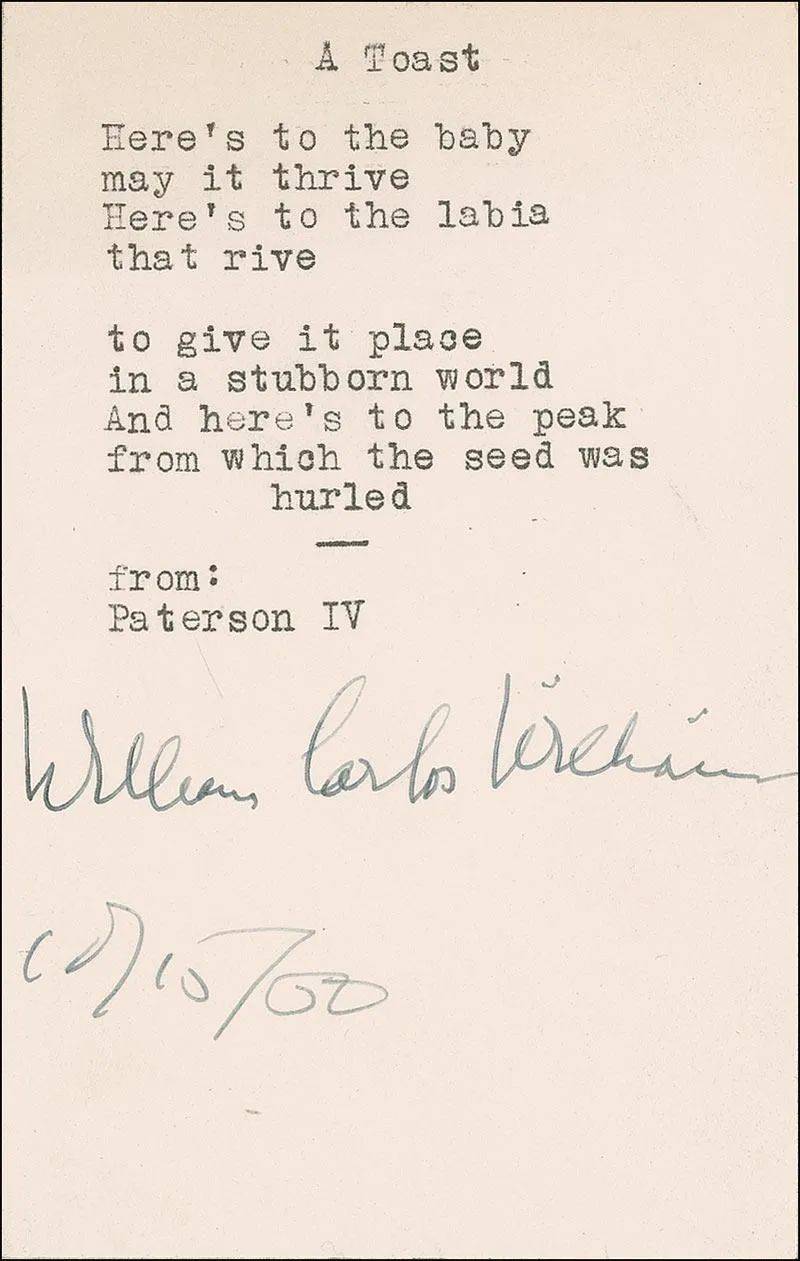 A Toast
Here's to the baby
may it thrive
Here's to the labia
that rive
to give it place
in a stubborn world
And here's to the peak
from which the seed was
hurled
from:
Paterson IV
William Carlos Williams